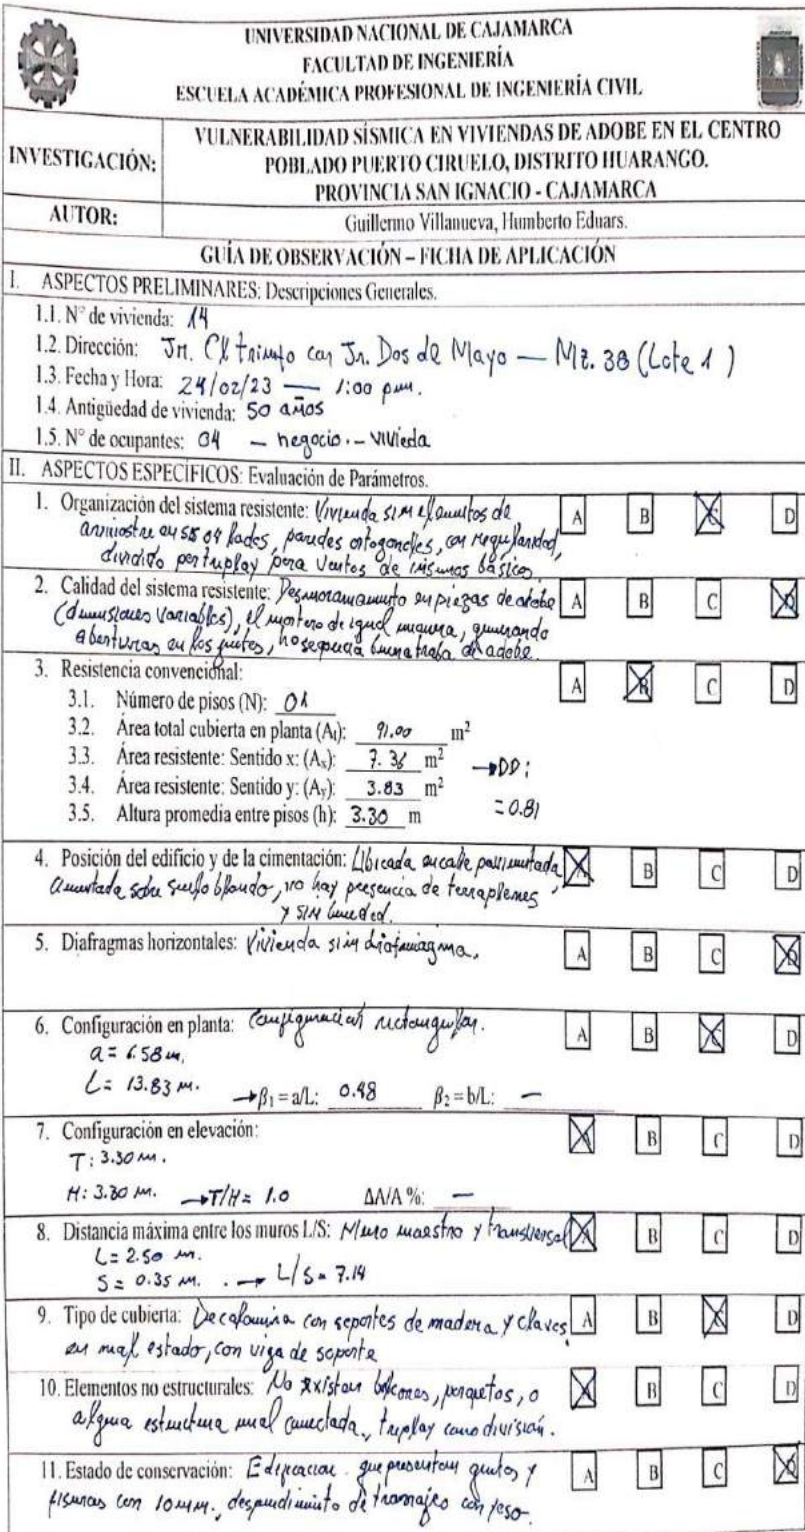 UNIVERSIDAD NACIONAL DE CAJAMARCA
FACULTAD DE INGENIERÍA
ESCUELA ACADÉMICA PROFESIONAL DE INGENIERÍA CIVIL
INVESTIGACIÓN:
VULNERABILIDAD SÍSMICA EN VIVIENDAS DE ADOBE EN EL CENTRO
POBLADO PUERTO CIRUELO, DISTRITO HUARANGO.
PROVINCIA SAN IGNACIO - CAJAMARCA
AUTOR:
Guillermo Villanueva, Humberto Eduars.
GUÍA DE OBSERVACIÓN – FICHA DE APLICACIÓN
I. ASPECTOS PRELIMINARES: Descripciones Generales.
1.1. N° de vivienda: 14
1.2. Dirección: Jr. triunfo con Jr. Dos de Mayo — Mz. 38 (Lote 1)
1.3. Fecha y Hora: 24/02/23 — 1:00 pm.
1.4. Antigüedad de vivienda: 50 años
1.5. N° de ocupantes: 04 – negocio. – vivieda
II. ASPECTOS ESPECÍFICOS: Evaluación de Parámetros.
1. Organización del sistema resistente: Vivienda sin elementos de A B C D
arriostre en sus 04 lados, paredes ortogonales, con regularidad,
dividido por triplay para ventas de insumos básicos.
2. Calidad del sistema resistente: Desmoronamiento en piezas de adobe A B C D
(dimensiones variables), el mortero de igual manera, generando
aberturas en las juntas, no se aprecia buena traba de adobe.
3. Resistencia convencional: A B C D
3.1. Número de pisos (N): 01
3.2. Área total cubierta en planta (At): 91.00 m²
3.3. Área resistente: Sentido x: (Ax): 7.36 m² → DD:
3.4. Área resistente: Sentido y: (Ay): 3.83 m² = 0.81
3.5. Altura promedia entre pisos (h): 3.30 m
4. Posición del edificio y de la cimentación: Ubicada en calle pavimentada, A B C D
cimentada sobre suelo blando, no hay presencia de terraplenes
y sin humedad.
5. Diafragmas horizontales: Vivienda sin diafragma. A B C D
6. Configuración en planta: Configuración rectangular. A B C D
a = 6.58 m.
L = 13.83 m. → β₁ = a/L: 0.48 β₂ = b/L: –
7. Configuración en elevación: A B C D
T: 3.30 m.
H: 3.30 m. → T/H = 1.0 ΔA/A %: –
8. Distancia máxima entre los muros L/S: Muro maestro y transversal A B C D
L = 2.50 m.
S = 0.35 m. . → L/S = 7.14
9. Tipo de cubierta: De calamina con soportes de madera y clavos A B C D
en mal estado, con viga de soporte
10. Elementos no estructurales: No existen balcones, parapetos, o A B C D
alguna estructura mal conectada, triplay como división.
11. Estado de conservación: Edificación que presentan grietas y A B C D
fisuras con 10 mm., desprendimiento de tarrajeo con yeso.